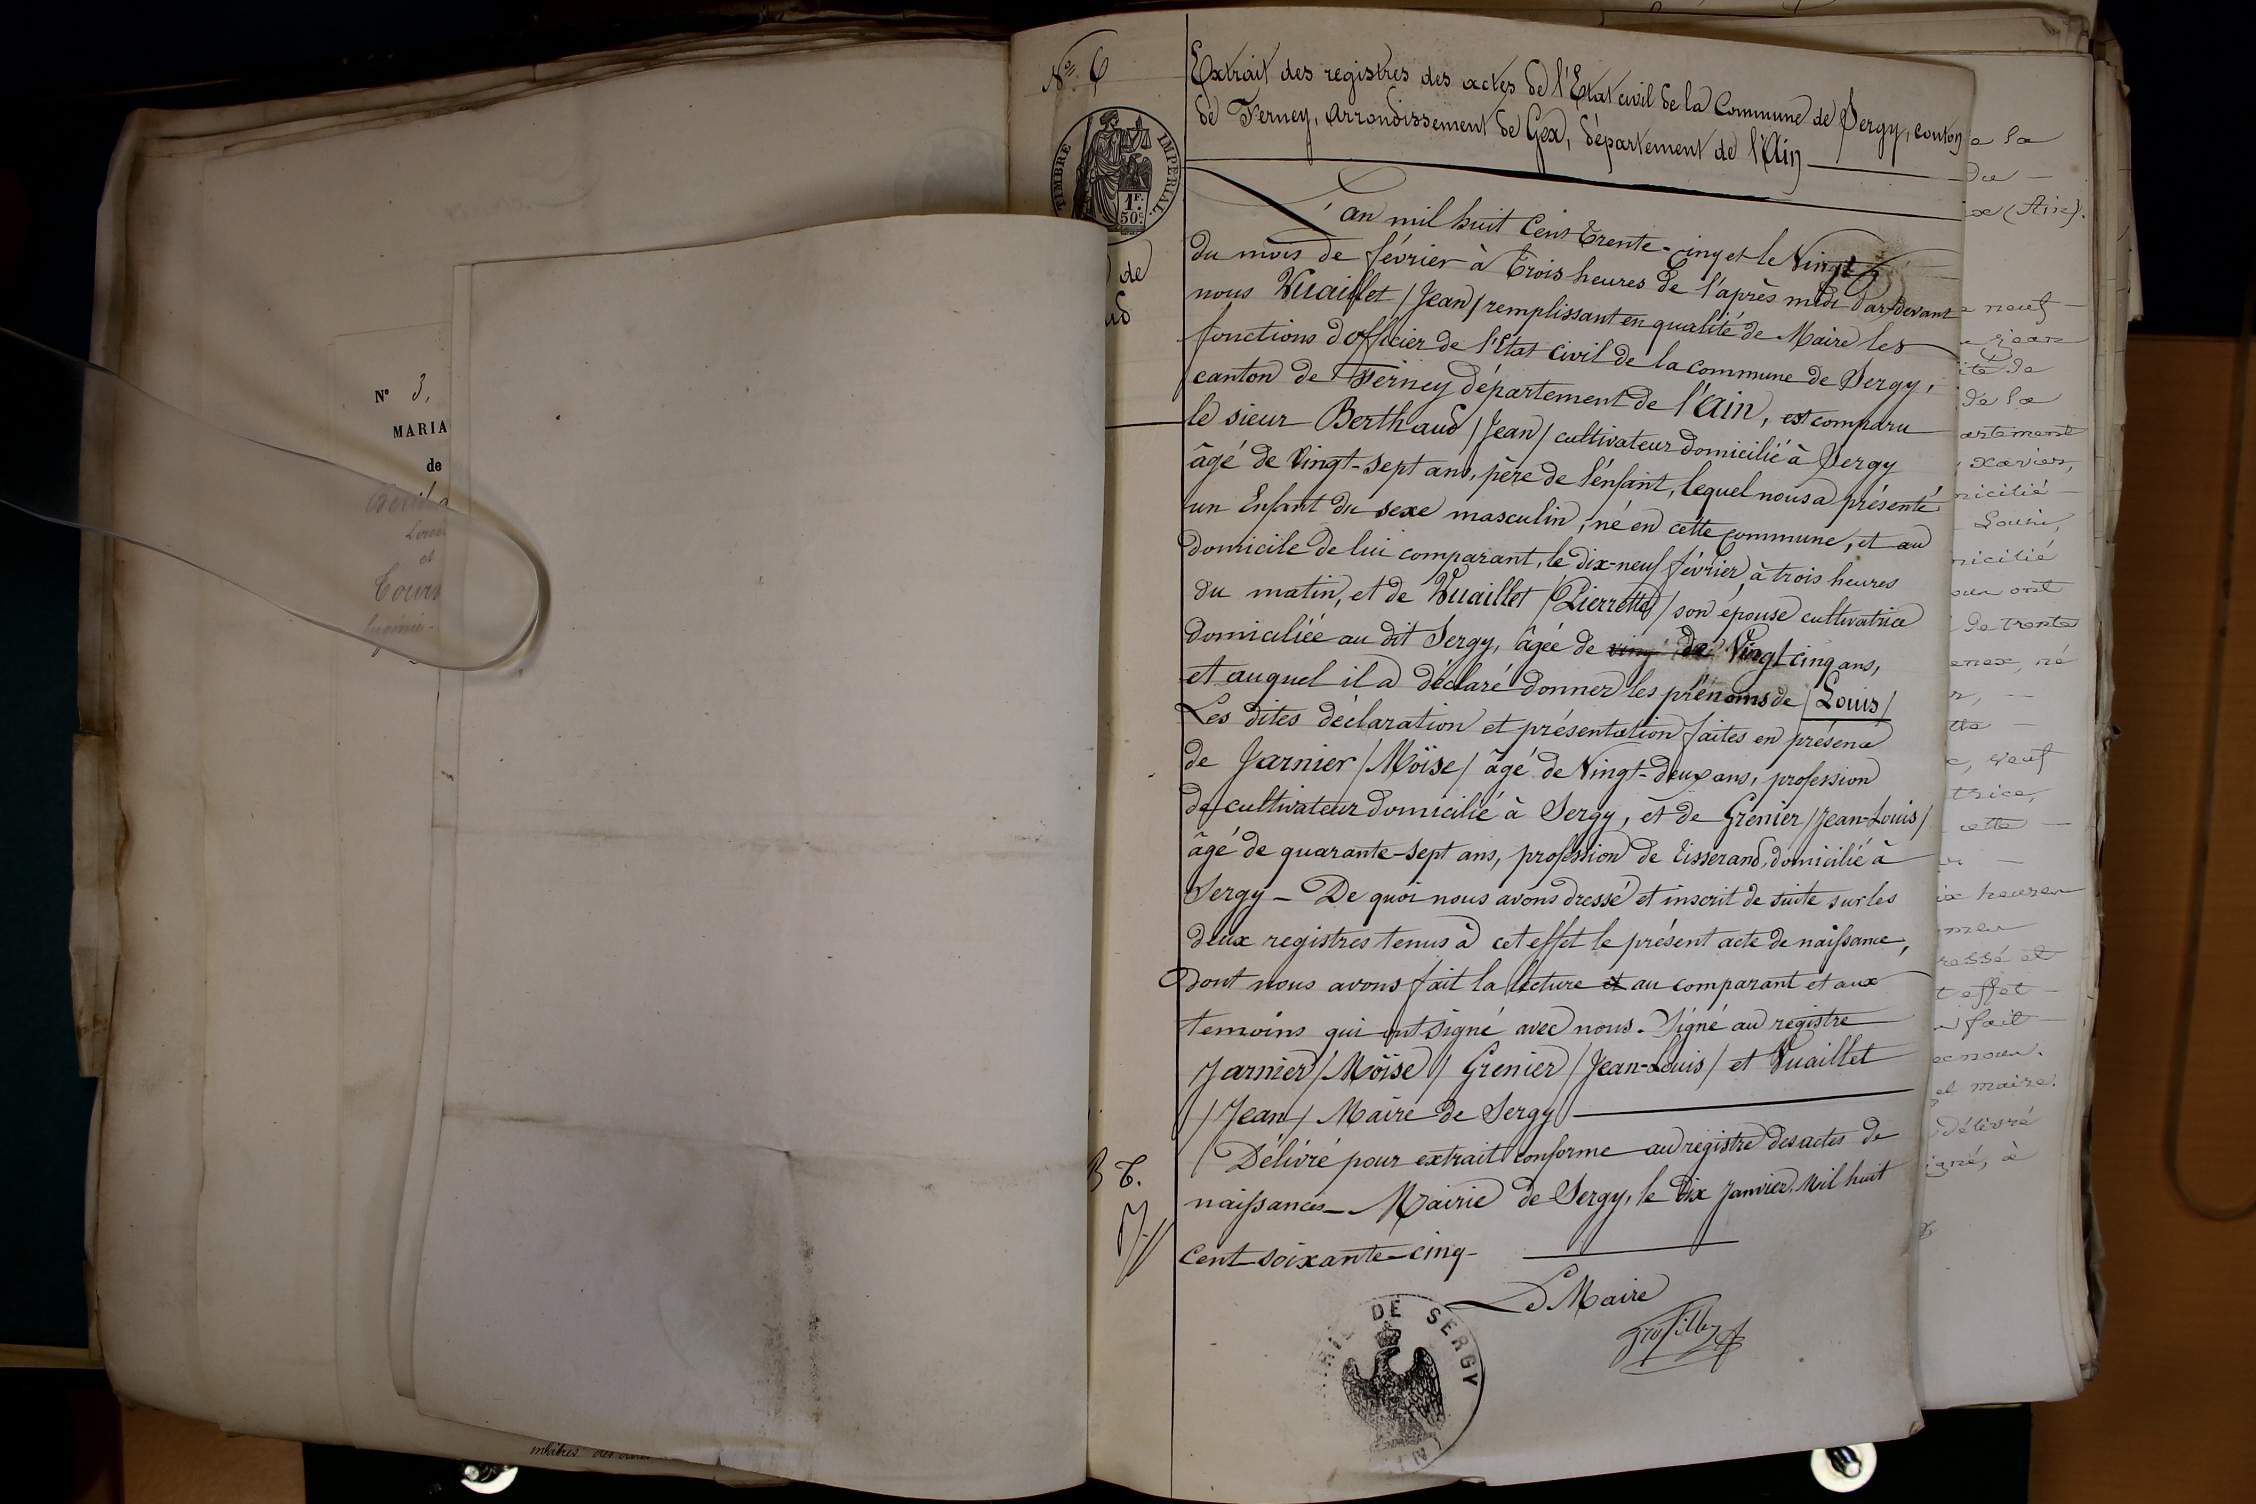 N° 3,
MARIA
de
et
N° 6
TIMBRE IMPÉRIAL.
1F.
50c
de
Extrait des registres des actes de l'Etat civil de la Commune de Sergy, canton
de Ferney, Arrondissement de Gex, département de l'Ain
L'an mil huit Cent Trente-cinq et le Vingt
du mois de février à Trois heures de l'après midi Par-devant
nous Vuaillet /Jean/ remplissant en qualité de Maire les
fonctions d'officier de l'Etat civil de la commune de Sergy,
canton de Ferney département de l'Ain, est comparu
le sieur Berthaud /Jean/ cultivateur domicilié à Sergy
âgé de Vingt-sept ans, père de l'enfant, lequel nous a présenté
un Enfant du sexe masculin, né en cette commune, et au
domicile de lui comparant, le dix-neuf février, à trois heures
du matin, et de Vuaillet /Pierrette/ son épouse cultivatrice
domiciliée au dit Sergy, âgée de ving de Vingt cinq ans,
et auquel il a déclaré donner les prénoms de /Louis/
Les dites déclaration et présentation faites en présence
de Jarnier /Moïse/ âgé de Vingt-deux ans, profession
de cultivateur domicilié à Sergy, et de Grenier /Jean-Louis/
âgé de quarante-sept ans, profession de tisserand, domicilié à
Sergy - De quoi nous avons dressé et inscrit de suite sur les
deux registres tenus à cet effet le présent acte de naissance,
dont nous avons fait la lecture et au comparant et aux
temoins qui ont signé avec nous. Signé au registre
Jarnier /Moïse/ Grenier /Jean-Louis/ et Vuaillet
/Jean/ Maire de Sergy
Délivré pour extrait conforme au registre des actes de
naissances - Mairie de Sergy, le dix Janvier Mil huit
Cent soixante-cinq
B T.
Le Maire
DE SERGY